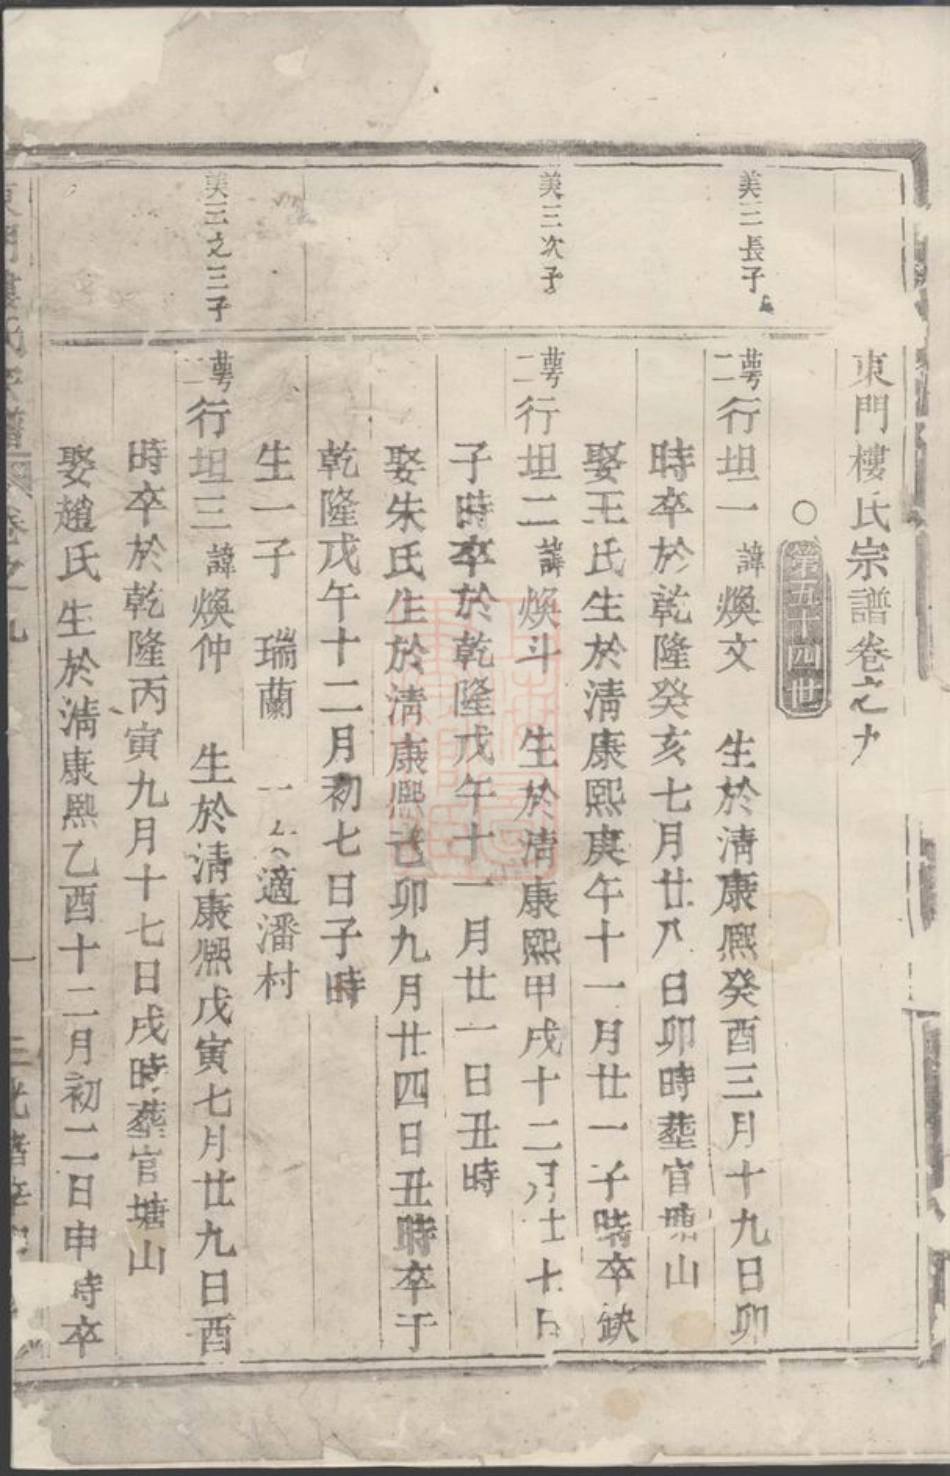 東門樓氏宗譜卷之九
○第五十四世
美三長子
行坦一 諱煥文 生於清康熙癸酉三月十九日卯
時卒於乾隆癸亥七月廿八日卯時塟官塘山
娶王氏生於清康熙庚午十一月廿一子時卒缺
美三次子
行坦二 諱煥斗 生於清康熙甲戌十二月廿七日
子時卒於乾隆戊午十一月廿一日丑時
娶朱氏生於清康熙己卯九月廿四日丑時卒于
乾隆戊午十二月初七日子時
生一子 瑞蘭 一女適潘村
美三之三子
行坦三 諱煥仲 生於清康熙戊寅七月廿九日酉
時卒於乾隆丙寅九月十七日戌時塟官塘山
娶趙氏生於清康熙乙酉十二月初二日申時卒
東門樓氏宗譜 卷之九 一